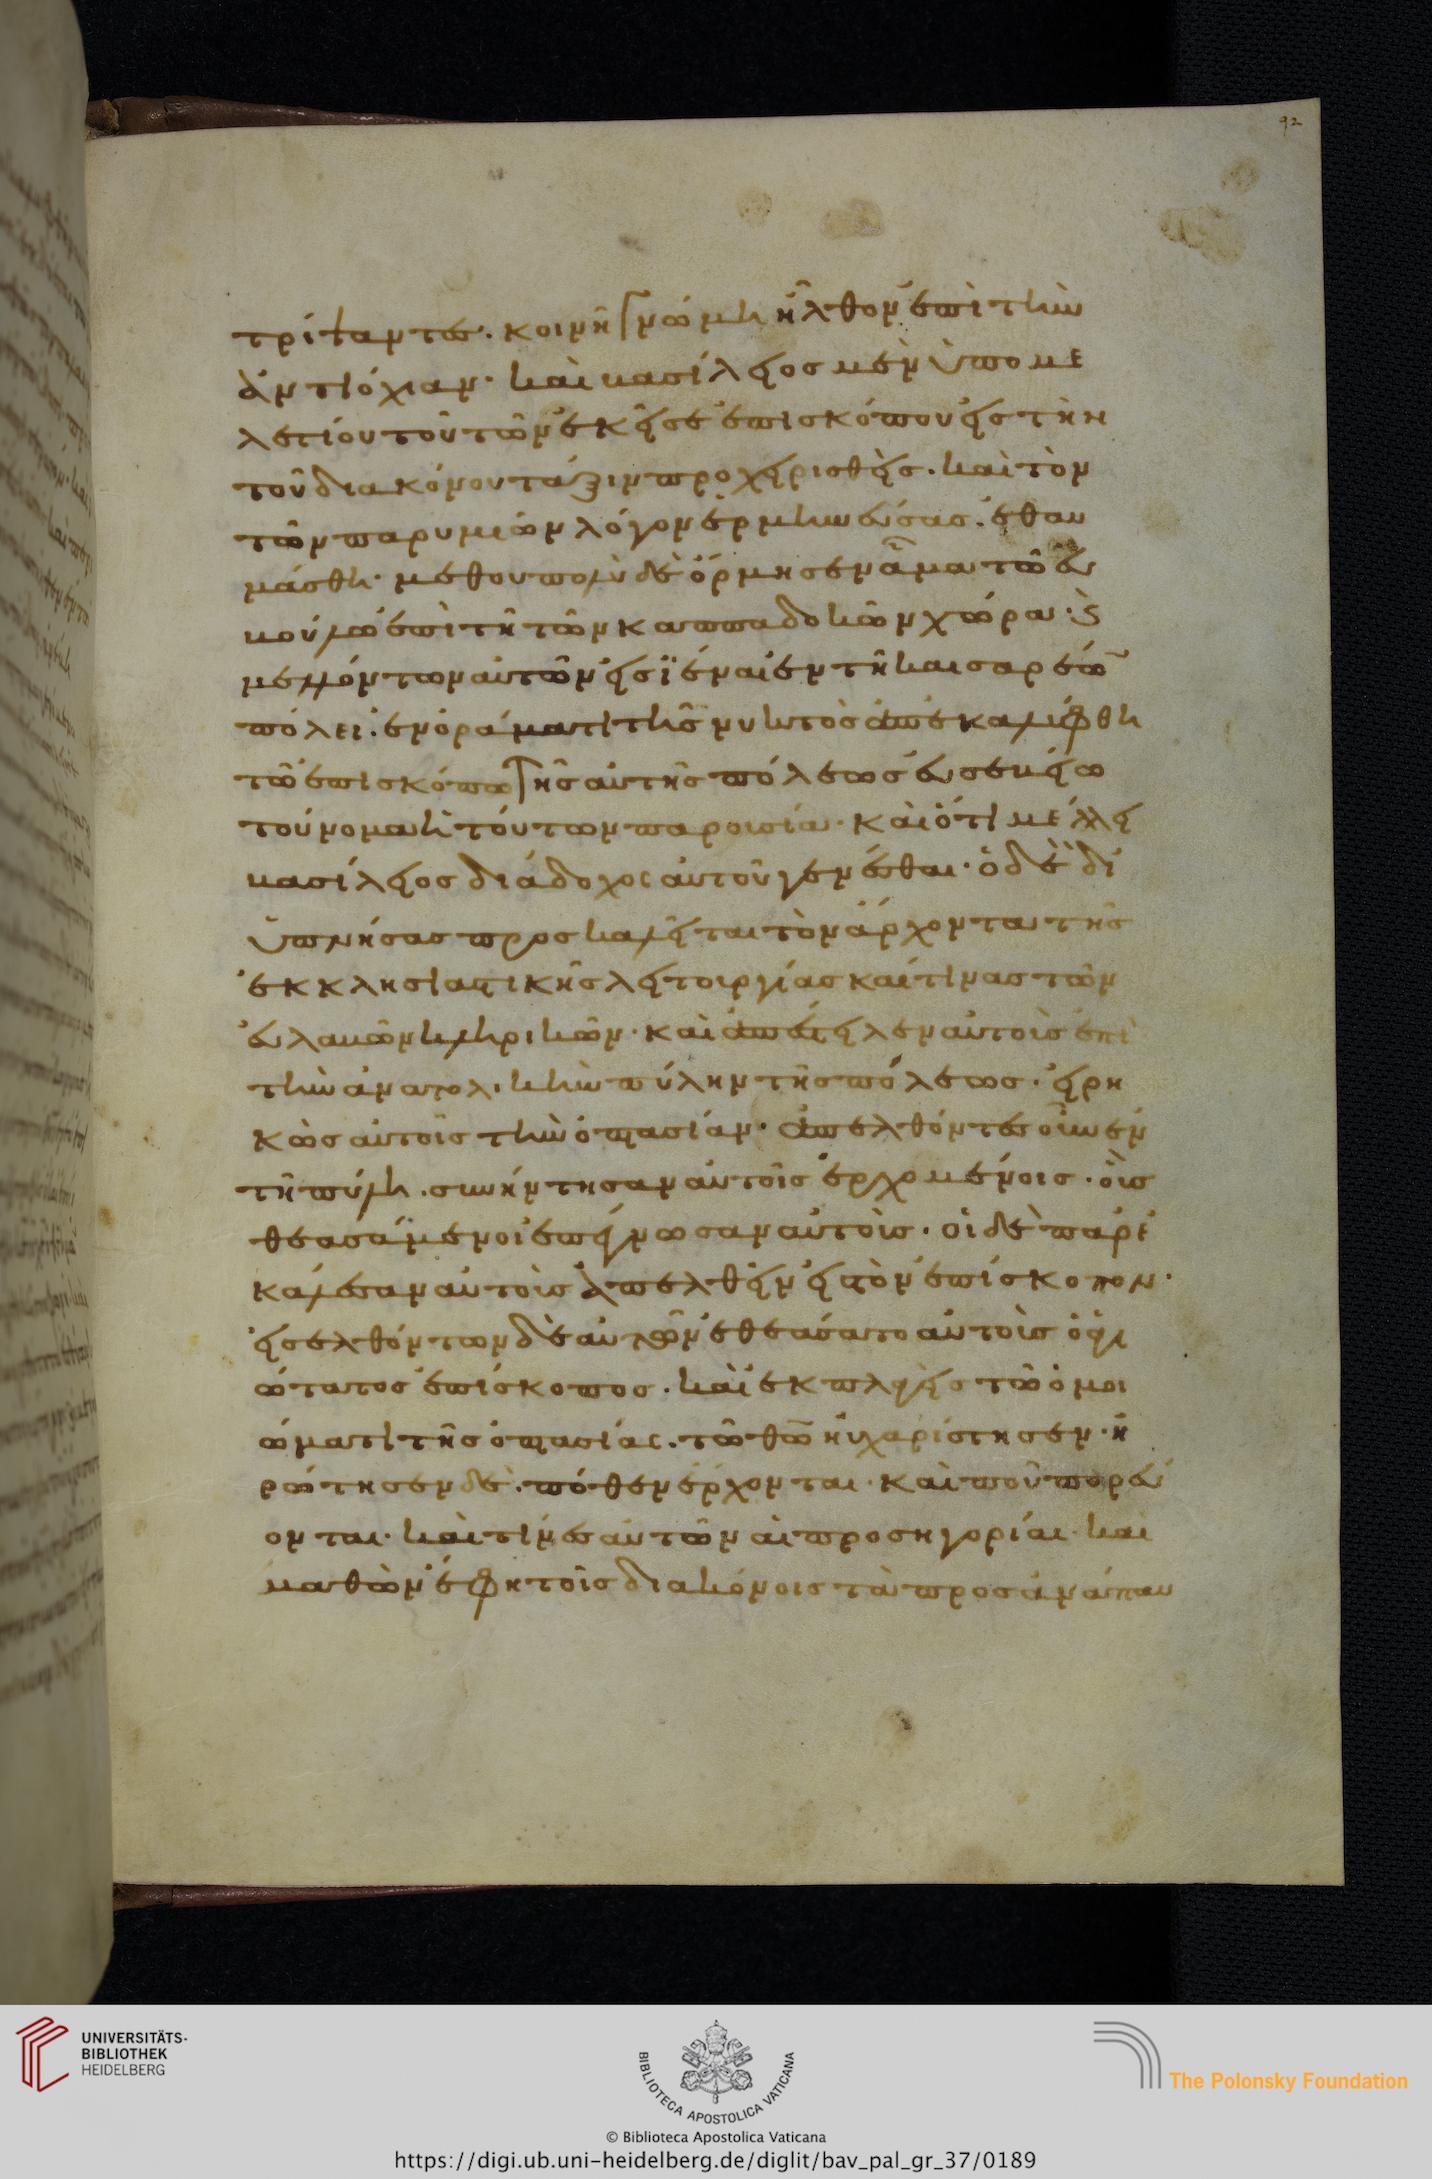 92
τρίψαντες. κοινῆ γνώμη ἦλθον ἐπὶ τὴν
ἀντιόχιαν· καὶ βασίλειος μὲν ὑπὸ με
λετίου τοῦ τῶν ἐκεῖσε ἐπισκόπου εἰς τὴν
τοῦ διακόνου τάξιν προχειρισθεὶς. καὶ τὸν
τῶν παρυμιῶν λόγον ἑρμηνεύσας. ἐθαυ
μάσθη· μεθουπολὺ δὲ ὅρμησεν ἅμα τῶ εὐ
βούλω ἐπὶ τῆ τῶν καππαδοκῶν χώρα· ϛ
μελλόντων αὐτῶν εἰσϊέναι ἐν τῆ καισαρέω
πόλει. ἐν ὁράματι τῆς νυκτὸς ἀπεκαλύφθη
τῶ ἐπισκόπω τῆς αὐτῆς πόλεως εὐσεβείω
τοὔνομα ἡ τούτων παρουσία· καὶ ὅτι μέλλει
βασίλειος διάδοχος αὐτοῦ γενέσθαι· ὁ δὲ δι
ϋπνήσας προσκαλεῖται τὸν ἄρχοντα τῆς
ἐκκλησιαστικῆς λειτουργίας καί τινας τῶν
εὐλαβῶν κληρικῶν· καὶ ἀπέστειλεν αὐτοὺς ἐπὶ
τὴν ἀνατολικὴν πύλην τῆς πόλεως· εἰρη
κὼς αὐτοῖς τὴν ὀπτασίαν· ἀπελθόντες οὖν ἐν
τῆ πύλη. συνήντησαν αὐτοῖς ἐρχομένοις· οὓς
θεασάμενοι ἐπείγνωσαν αὐτοὺς· οἱ δὲ παρε
κάλεσαν αὐτοὺς ἀπελθεῖν εἰς τὸν ἐπίσκοπον·
εἰσελθόντων δὲ αὐτῶν ἐθεάσατο αὐτοὺς ὁ ἁγι
ώτατος ἐπίσκοπος. καὶ ἐκπλαγεὶς τῶ ὁμοι
ώματι τῆς ὀπτασίας. τῶ θῶ ηὐχαρίστησεν· ἠ
ρώτησεν δὲ. πόθεν ἔρχονται· καὶ ποῦ πορεύ
ονται· καὶ τίνες αὐτῶν αἱ προσηγορίαι· καὶ
μαθὼν ἔφη τοῖς διακόνοις τὰ πρὸς ἀνάπαυ
UNIVERSITÄTS-
BIBLIOTHEK
HEIDELBERG
BIBLIOTECA APOSTOLICA VATICANA
The Polonsky Foundation
© Biblioteca Apostolica Vaticana
https://digi.ub.uni-heidelberg.de/diglit/bav_pal_gr_37/0189